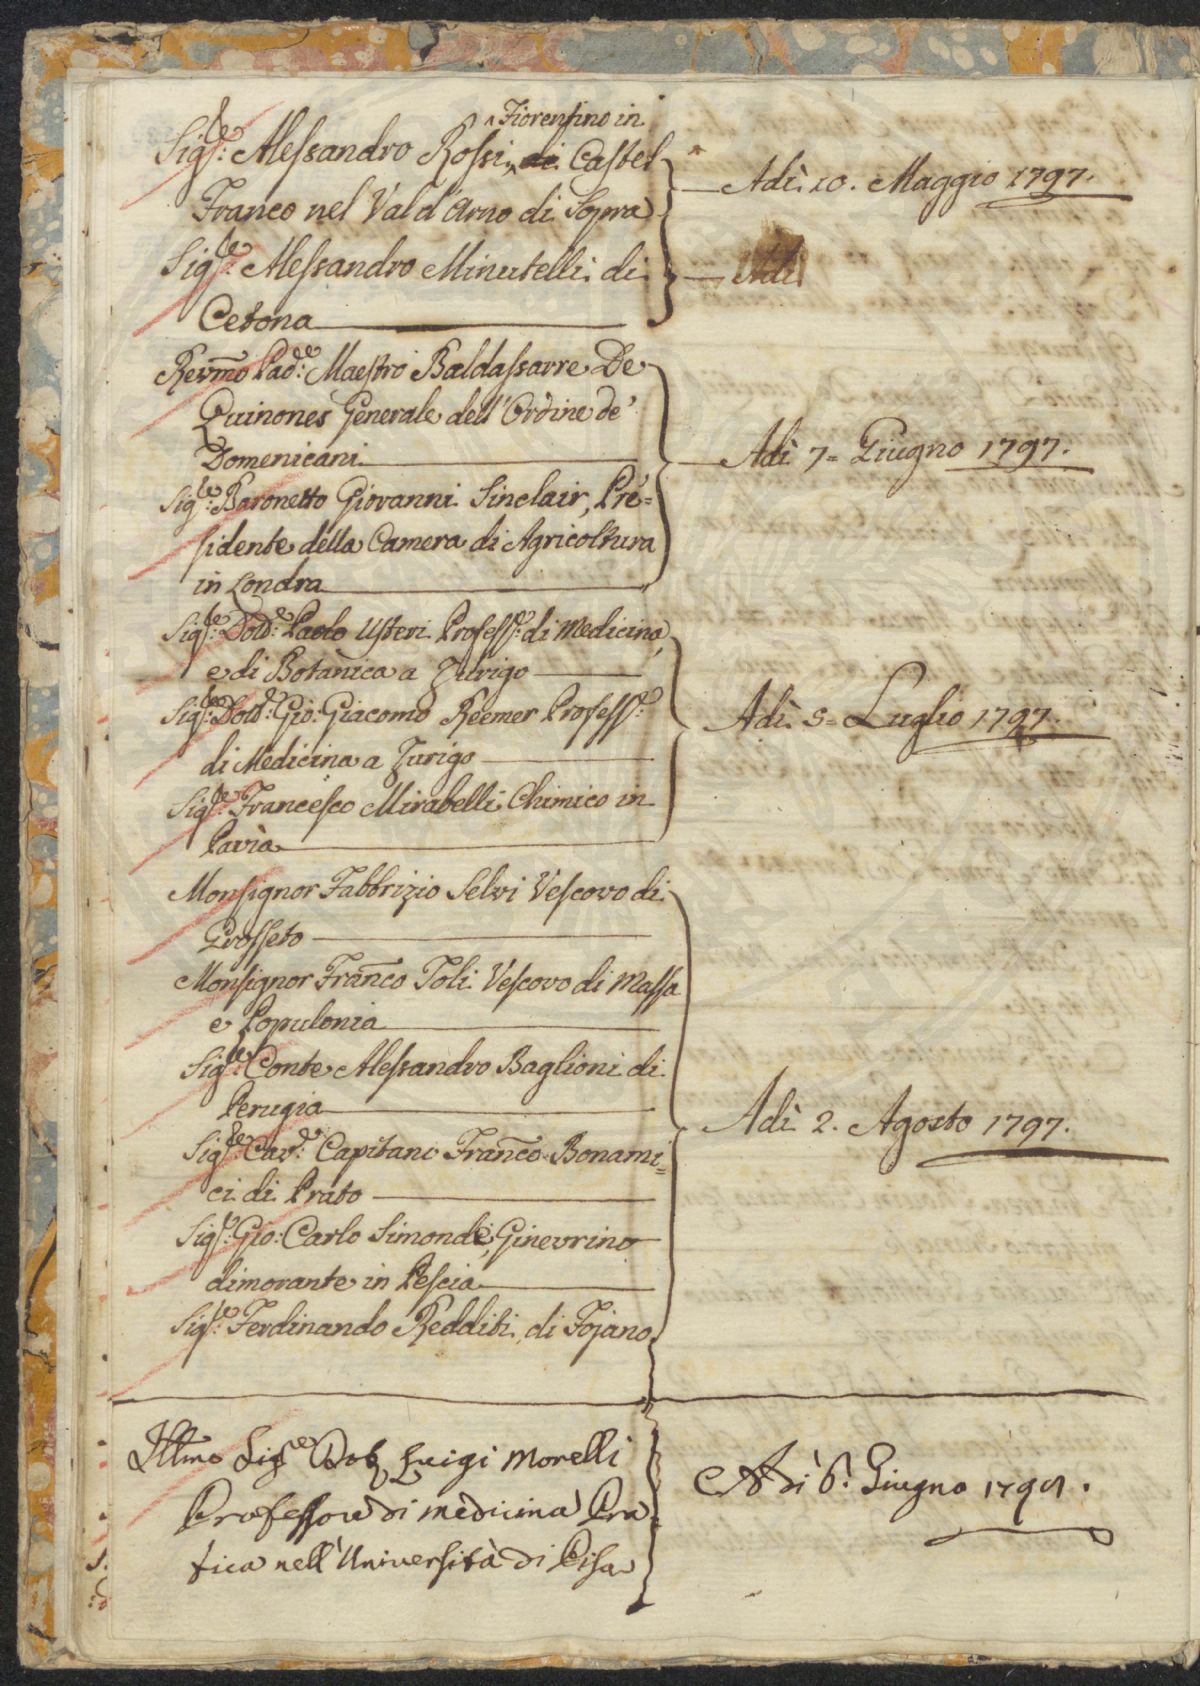 Fiorentino in
Sig.re: Alessandro Rossi, di Castel
Franco nel Val d'Arno di Sopra
Adì 10. Maggio 1797.
Sig.re: Alessandro Minutelli di
Adì
Cetona
Revmo Pad.re: Maestro Baldassarre De
Quinones Generale dell'Ordine de'
Domenicani
Adì 7= Giugno 1797.
Sig.re: Baronetto Giovanni Sinclair, Pre=
sidente della Camera di Agricoltura
in Londra
Sig.re: Dott.e: Paolo Usteri Profess.re: di Medicina,
e di Botanica a Zurigo
Sig.re: Dott.e: Gio: Giacomo Reemer Profess.re:
Adì 5= Luglio 1797.
di Medicina a Zurigo
Sig.re: Francesco Mirabelli Chimico in
Pavia
Monsignor Fabbrizio Selvi Vescovo di
Grosseto
Monsignor Franco Toli Vescovo di Massa
e Populonia
Sig.re: Conte Alessandro Baglioni di
Perugia
Adì 2. Agosto 1797.
Sig.re: Cav.e: Capitano Franco Bonami=
ci di Prato
Sig.e: Gio: Carlo Simonde, Ginevrino
dimorante in Pescia
Sig.re: Ferdinando Redditi di Fojano
Illmo Sig.re Dot Luigi Morelli
Professore di medicina Pra
tica nell'Università di Pisa
Adì 6. Giugno